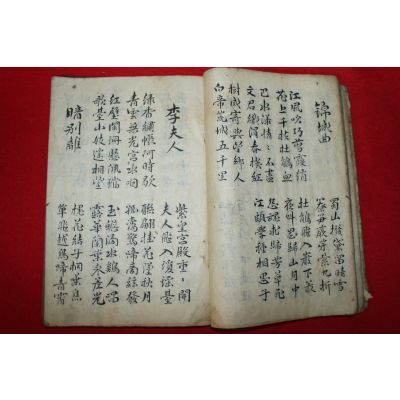 錦城曲
蜀山攢黛留晴雪
簝笋蕨芽縈九折
江風吹巧剪霞綃
花上千枝杜鵑血
杜鵑飛入巖下叢
夜叫思歸山月中
巴水漾情〻不盡
文君織得春機紅
怨魄未歸芳草死
江頭學種相思子
樹成寄與望鄉人
白帝荒城五千里
李夫人
紫皇宮殿重〻開
夫人飛入瓊瑤臺
綠香繡帳何時歇
青雲無光宮水咽
翩聯桂花墜秋月
孤鸞驚啼商絲發
紅壁闌珊懸佩璫
歌臺小妓遙相望
玉蟾滴水鷄人唱
露華蘭葉參差光
暗別離
槐花結子桐葉焦
單飛越鳥啼青霄